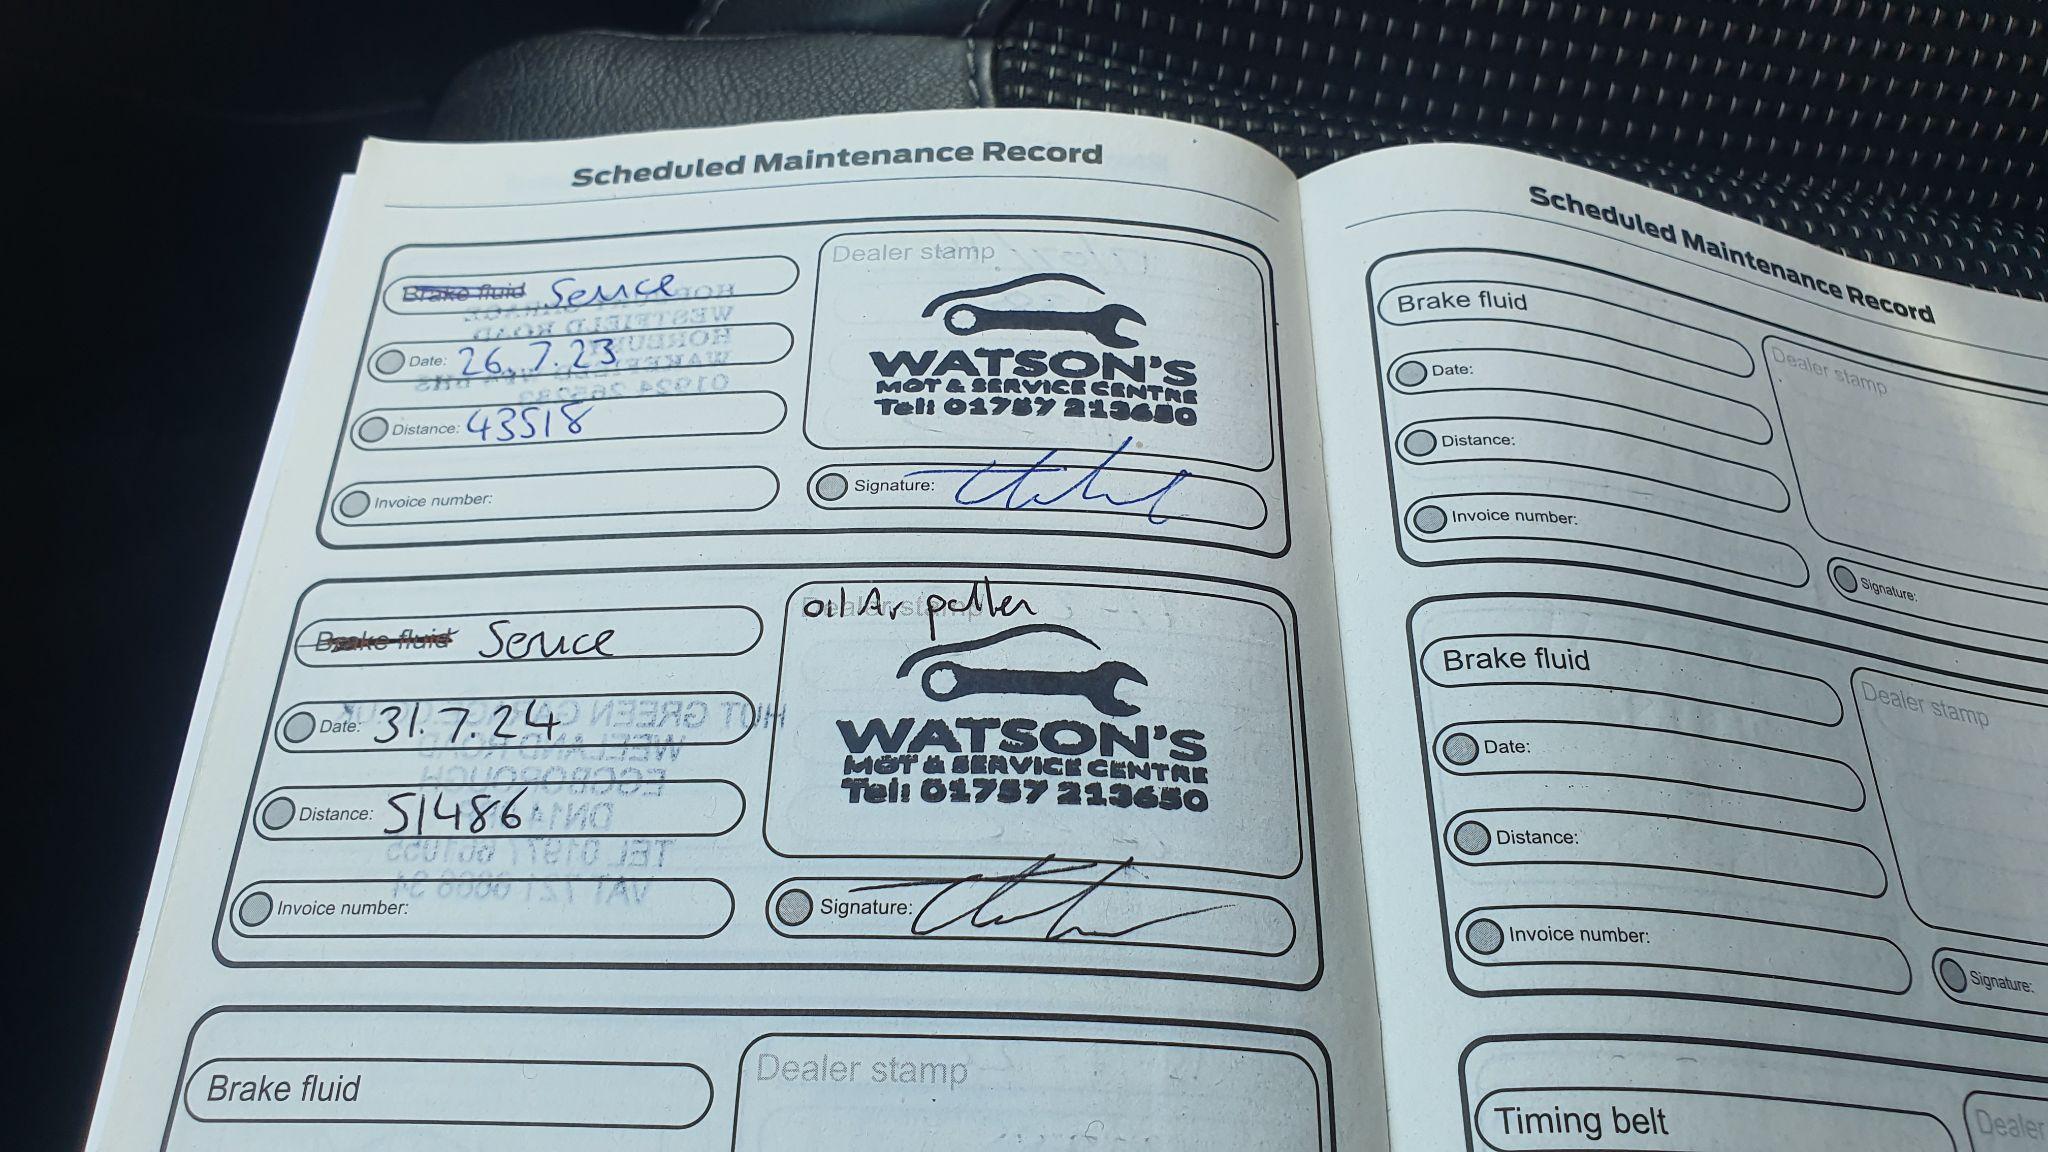 Scheduled Maintenance Record
Brake fluid Service
Date: 26.7.23
Distance: 43518
Invoice number:
Dealer stamp
WATSON'S
MOT & SERVICE CENTRE
Tel: 01757 213650
Signature:
Brake fluid Service
Date: 31.7.24
Distance: 51486
Invoice number:
Dealer stamp
oil Air pollen
WATSON'S
MOT & SERVICE CENTRE
Tel: 01757 213650
Signature:
Brake fluid
Dealer stamp
Scheduled Maintenance Record
Brake fluid
Date:
Distance:
Invoice number:
Dealer stamp
Signature:
Brake fluid
Date:
Distance:
Invoice number:
Dealer stamp
Signature:
Timing belt
Dealer